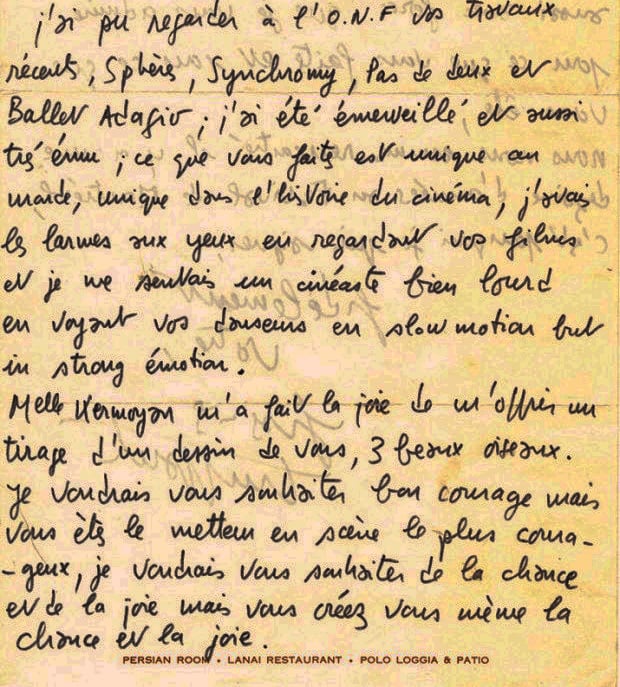 j'ai pu regarder à l'O.N.F vos travaux
récents, Sphères, Synchromy, Pas de deux et
Ballet Adagio ; j'ai été émerveillé et aussi
trés ému ; ce que vous faites est unique au
monde, unique dans l'histoire du cinéma, j'avais
les larmes aux yeux en regardant vos films
et je me sentais un cinéaste bien lourd
en voyant vos danseurs en slow motion but
in strong émotion.
Melle Kermoyan m'a fait la joie de m'offrir un
tirage d'un dessin de vous, 3 beaux oiseaux.
Je voudrais vous souhaiter bon courage mais
vous êtes le metteur en scène le plus coura-
-geux, je voudrais vous souhaiter de la chance
et de la joie mais vous créez vous même la
chance et la joie.
PERSIAN ROOM • LANAI RESTAURANT • POLO LOGGIA & PATIO